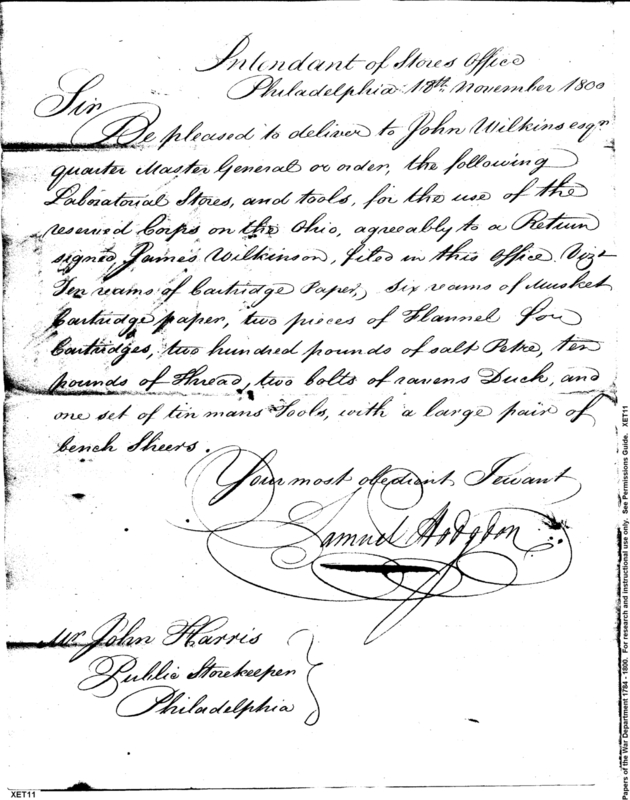 Intendant of Stores Office
Philadelphia 18th November 1800
Sir
Be pleased to deliver to John Wilkins esqr
quarter Master General or order, the following
Laboratorial Stores, and tools, for the use of the
reserved Corps on the Ohio, agreeably to a Return
signed, James Wilkinson, filed in this Office. Vizt
Ten reams of Cartridge Paper, Six reams of Musket
Cartridge paper, two pieces of Flannel for
Cartridges, two hundred pounds of salt Petre, ten
pounds of Thread, two bolts of ravens Duck, and
one set of tin mans Tools, with a large pair of
bench Sheers.
Your most obedient Servant
Samuel Hodgdon
Mr. John Harris
Public Storekeeper
Philadelphia
XET11
Papers of the War Department 1784 - 1800. For research and instructional use only. See Permissions Guide. XET11